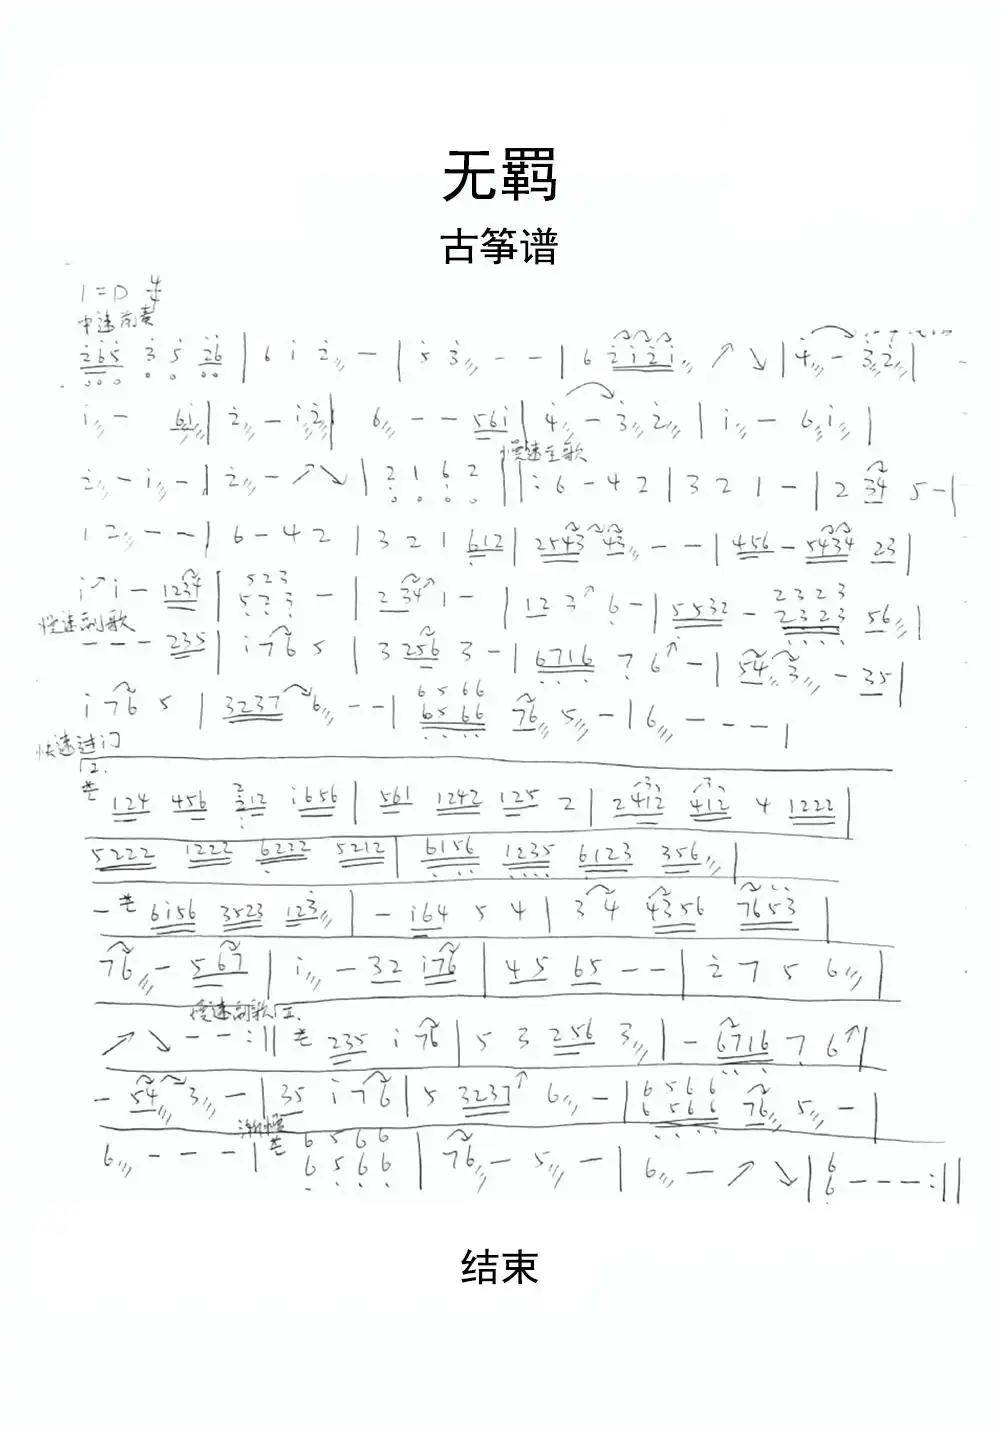 无羁
古筝谱
1=D 4/4
中速前奏
i̇65 3̇ 5̇ 2̇6 | 6 i 2̇ — | 5̇ 3̇ — — | 6 2̇i2̇i ↗ ↘ | 4̇ — 3̇2̇ |
i — 6i | 2̇ — i2̇ | 6 — — 56i | 4̇ — 3̇ 2̇ | i — 6 i |
慢速主歌
2̇ — i — | 2̇ — ↗ ↘ | 2 1 6 2 ||: 6 — 4 2 | 3 2 1 — | 2 34 5 — |
1 2 — — | 6 — 4 2 | 3 2 1 612 | 2543 43 — — | 456 — 5434 23 |
i i — 1234 | 523 523 — | 2 34 1 — | 12 3 6 — | 5532 — 2323 2323 56 |
慢速副歌
— — — 235 | i 76 5 | 3 256 3 — | 6716 7 6 — | 54 3 — 35 |
i 76 5 | 3237 6 — — | 6566 6566 76 5 — | 6 — — — |
快速过门
2.
124 456 2212 i656 | 561 1242 125 2 | 2412 412 4 1222 |
5222 1222 6222 5212 | 6156 1235 6123 356 |
— 6i56 3523 123 | — i64 5 4 | 3 4 4356 7653 |
76 — 567 | i — 32 i76 | 45 65 — — | 2̇ 7 5 6 |
慢速副歌Ⅱ.
↗ ↘ — — :|| 235 i 76 | 5 3 256 3 | — 6716 7 6 |
— 54 3 — | 35 i 76 | 5 3237 6 — | 6566 6566 76 5 — |
渐慢
6 — — — | 6566 6566 | 76 — 5 — | 6 — ↗ ↘ | 6 6 — — — :||
结束